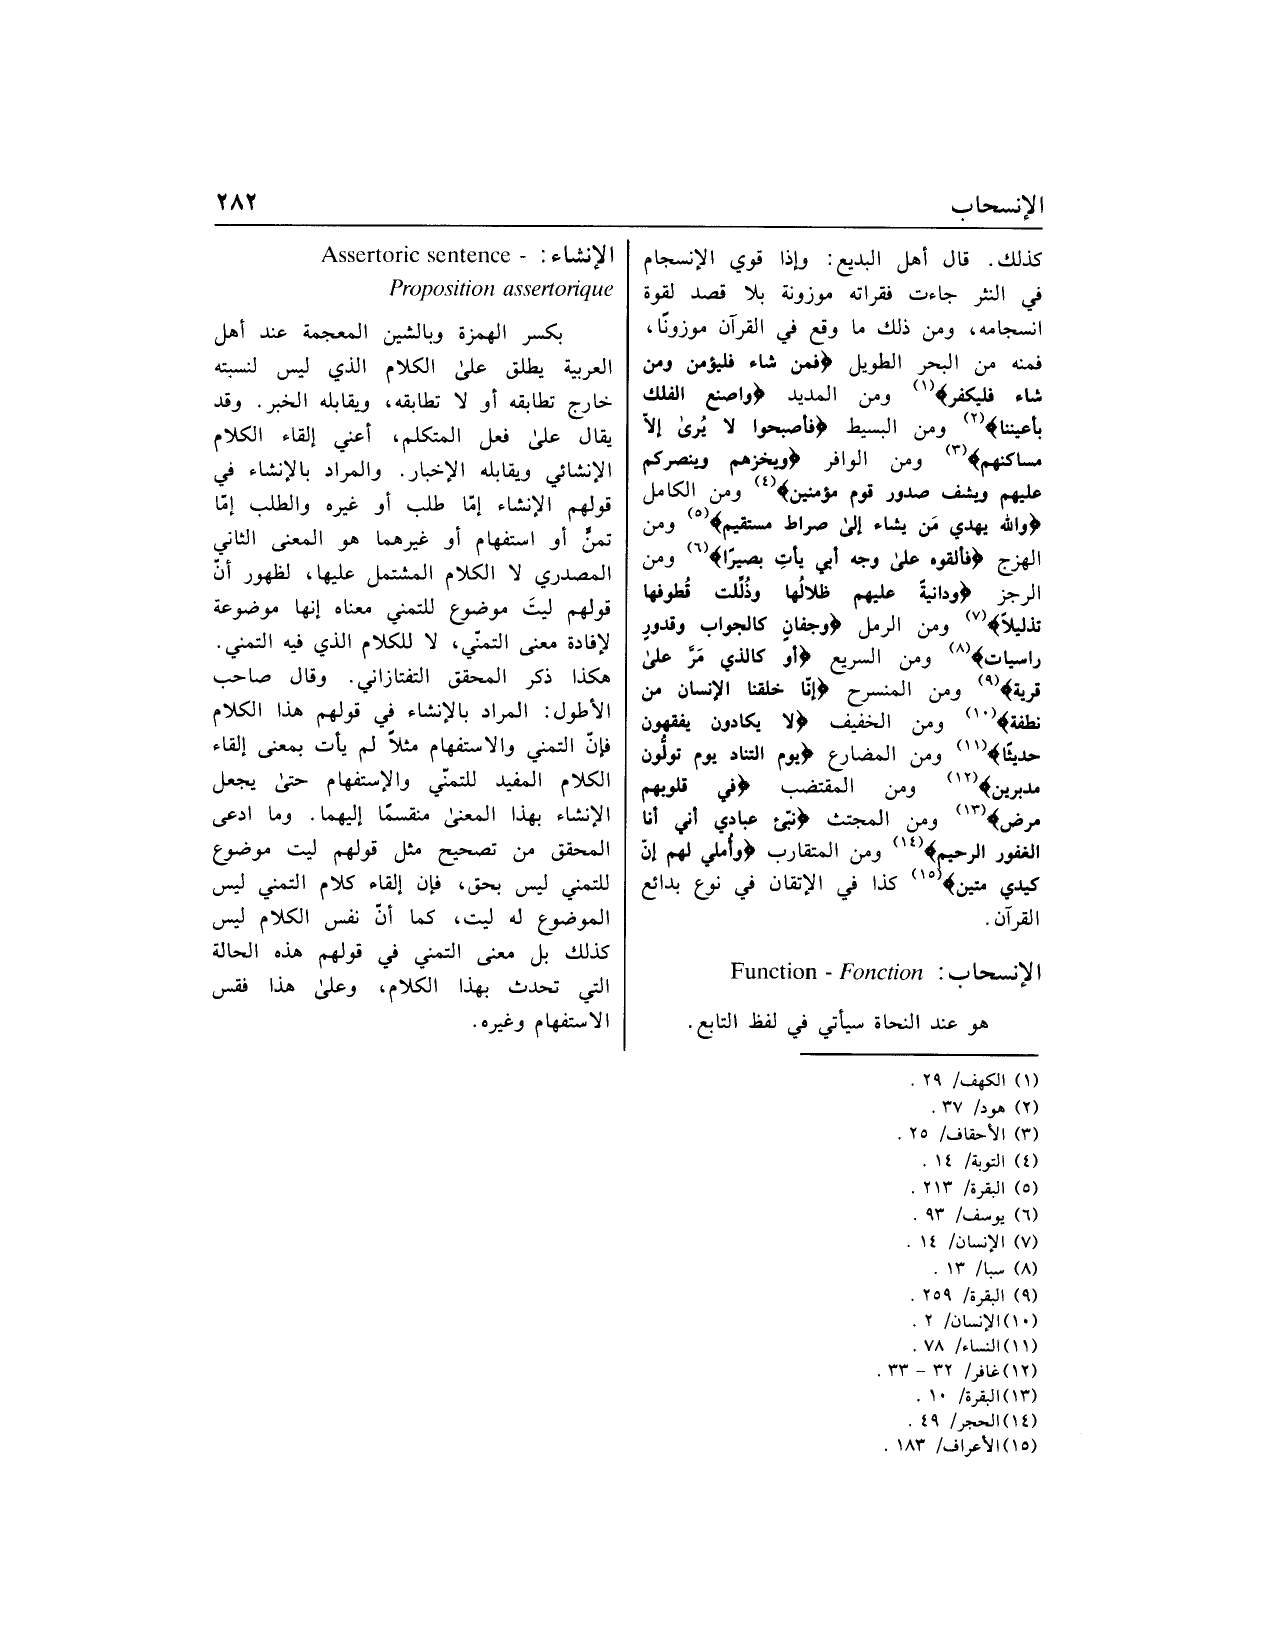 الإنسحاب
٢٨٢
كذلك. قال أهل البديع: وإذا قوي الإنسجام
في النثر جاءت فقراته موزونة بلا قصد لقوة
انسجامه، ومن ذلك ما وقع في القرآن موزونًا،
فمنه من البحر الطويل ﴿فمن شاء فليؤمن ومن
شاء فليكفر﴾(١) ومن المديد ﴿واصنع الفلك
بأعيننا﴾(٢) ومن البسيط ﴿فأصبحوا لا يُرىٰ إلاّ
مساكنهم﴾(٣) ومن الوافر ﴿ويخزهم وينصركم
عليهم ويشف صدور قوم مؤمنين﴾(٤) ومن الكامل
﴿والله يهدي مَن يشاء إلىٰ صراط مستقيم﴾(٥) ومن
الهزج ﴿فألقوه علىٰ وجه أبي يأتِ بصيرًا﴾(٦) ومن
الرجز ﴿ودانيةً عليهم ظلالُها وذُلِّلت قُطوفها
تذليلاً﴾(٧) ومن الرمل ﴿وجفانٍ كالجواب وقدورٍ
راسيات﴾(٨) ومن السريع ﴿أو كالذي مَرَّ علىٰ
قرية﴾(٩) ومن المنسرح ﴿إنّا خلقنا الإنسان من
نطفة﴾(١٠) ومن الخفيف ﴿لا يكادون يفقهون
حديثًا﴾(١١) ومن المضارع ﴿يوم التناد يوم تولُّون
مدبرين﴾(١٢) ومن المقتضب ﴿في قلوبهم
مرض﴾(١٣) ومن المجتث ﴿نبّئ عبادي أني أنا
الغفور الرحيم﴾(١٤) ومن المتقارب ﴿وأُملي لهم إنّ
كيدي متين﴾(١٥) كذا في الإتقان في نوع بدائع
القرآن.
الإنسحاب: Function - Fonction
هو عند النحاة سيأتي في لفظ التابع.
الإنشاء: Assertoric sentence -
Proposition assertorique
بكسر الهمزة وبالشين المعجمة عند أهل
العربية يطلق علىٰ الكلام الذي ليس لنسبته
خارج تطابقه أو لا تطابقه، ويقابله الخبر. وقد
يقال علىٰ فعل المتكلم، أعني إلقاء الكلام
الإنشائي ويقابله الإخبار. والمراد بالإنشاء في
قولهم الإنشاء إمّا طلب أو غيره والطلب إمّا
تمنٍّ أو استفهام أو غيرهما هو المعنى الثاني
المصدري لا الكلام المشتمل عليها، لظهور أنّ
قولهم ليتَ موضوع للتمني معناه إنها موضوعة
لإفادة معنى التمنّي، لا للكلام الذي فيه التمني.
هكذا ذكر المحقق التفتازاني. وقال صاحب
الأطول: المراد بالإنشاء في قولهم هذا الكلام
فإنّ التمني والاستفهام مثلاً لم يأت بمعنى إلقاء
الكلام المفيد للتمنّي والإستفهام حتىٰ يجعل
الإنشاء بهذا المعنىٰ منقسمًا إليهما. وما ادعى
المحقق من تصحيح مثل قولهم ليت موضوع
للتمني ليس بحق، فإن إلقاء كلام التمني ليس
الموضوع له ليت، كما أنّ نفس الكلام ليس
كذلك بل معنى التمني في قولهم هذه الحالة
التي تحدث بهذا الكلام، وعلىٰ هذا فقس
الاستفهام وغيره.
(١) الكهف/ ٢٩ .
(٢) هود/ ٣٧ .
(٣) الأحقاف/ ٢٥ .
(٤) التوبة/ ١٤ .
(٥) البقرة/ ٢١٣ .
(٦) يوسف/ ٩٣ .
(٧) الإنسان/ ١٤ .
(٨) سبا/ ١٣ .
(٩) البقرة/ ٢٥٩ .
(١٠)الإنسان/ ٢ .
(١١)النساء/ ٧٨ .
(١٢)غافر/ ٣٢ - ٣٣ .
(١٣)البقرة/ ١٠ .
(١٤)الحجر/ ٤٩ .
(١٥)الأعراف/ ١٨٣ .